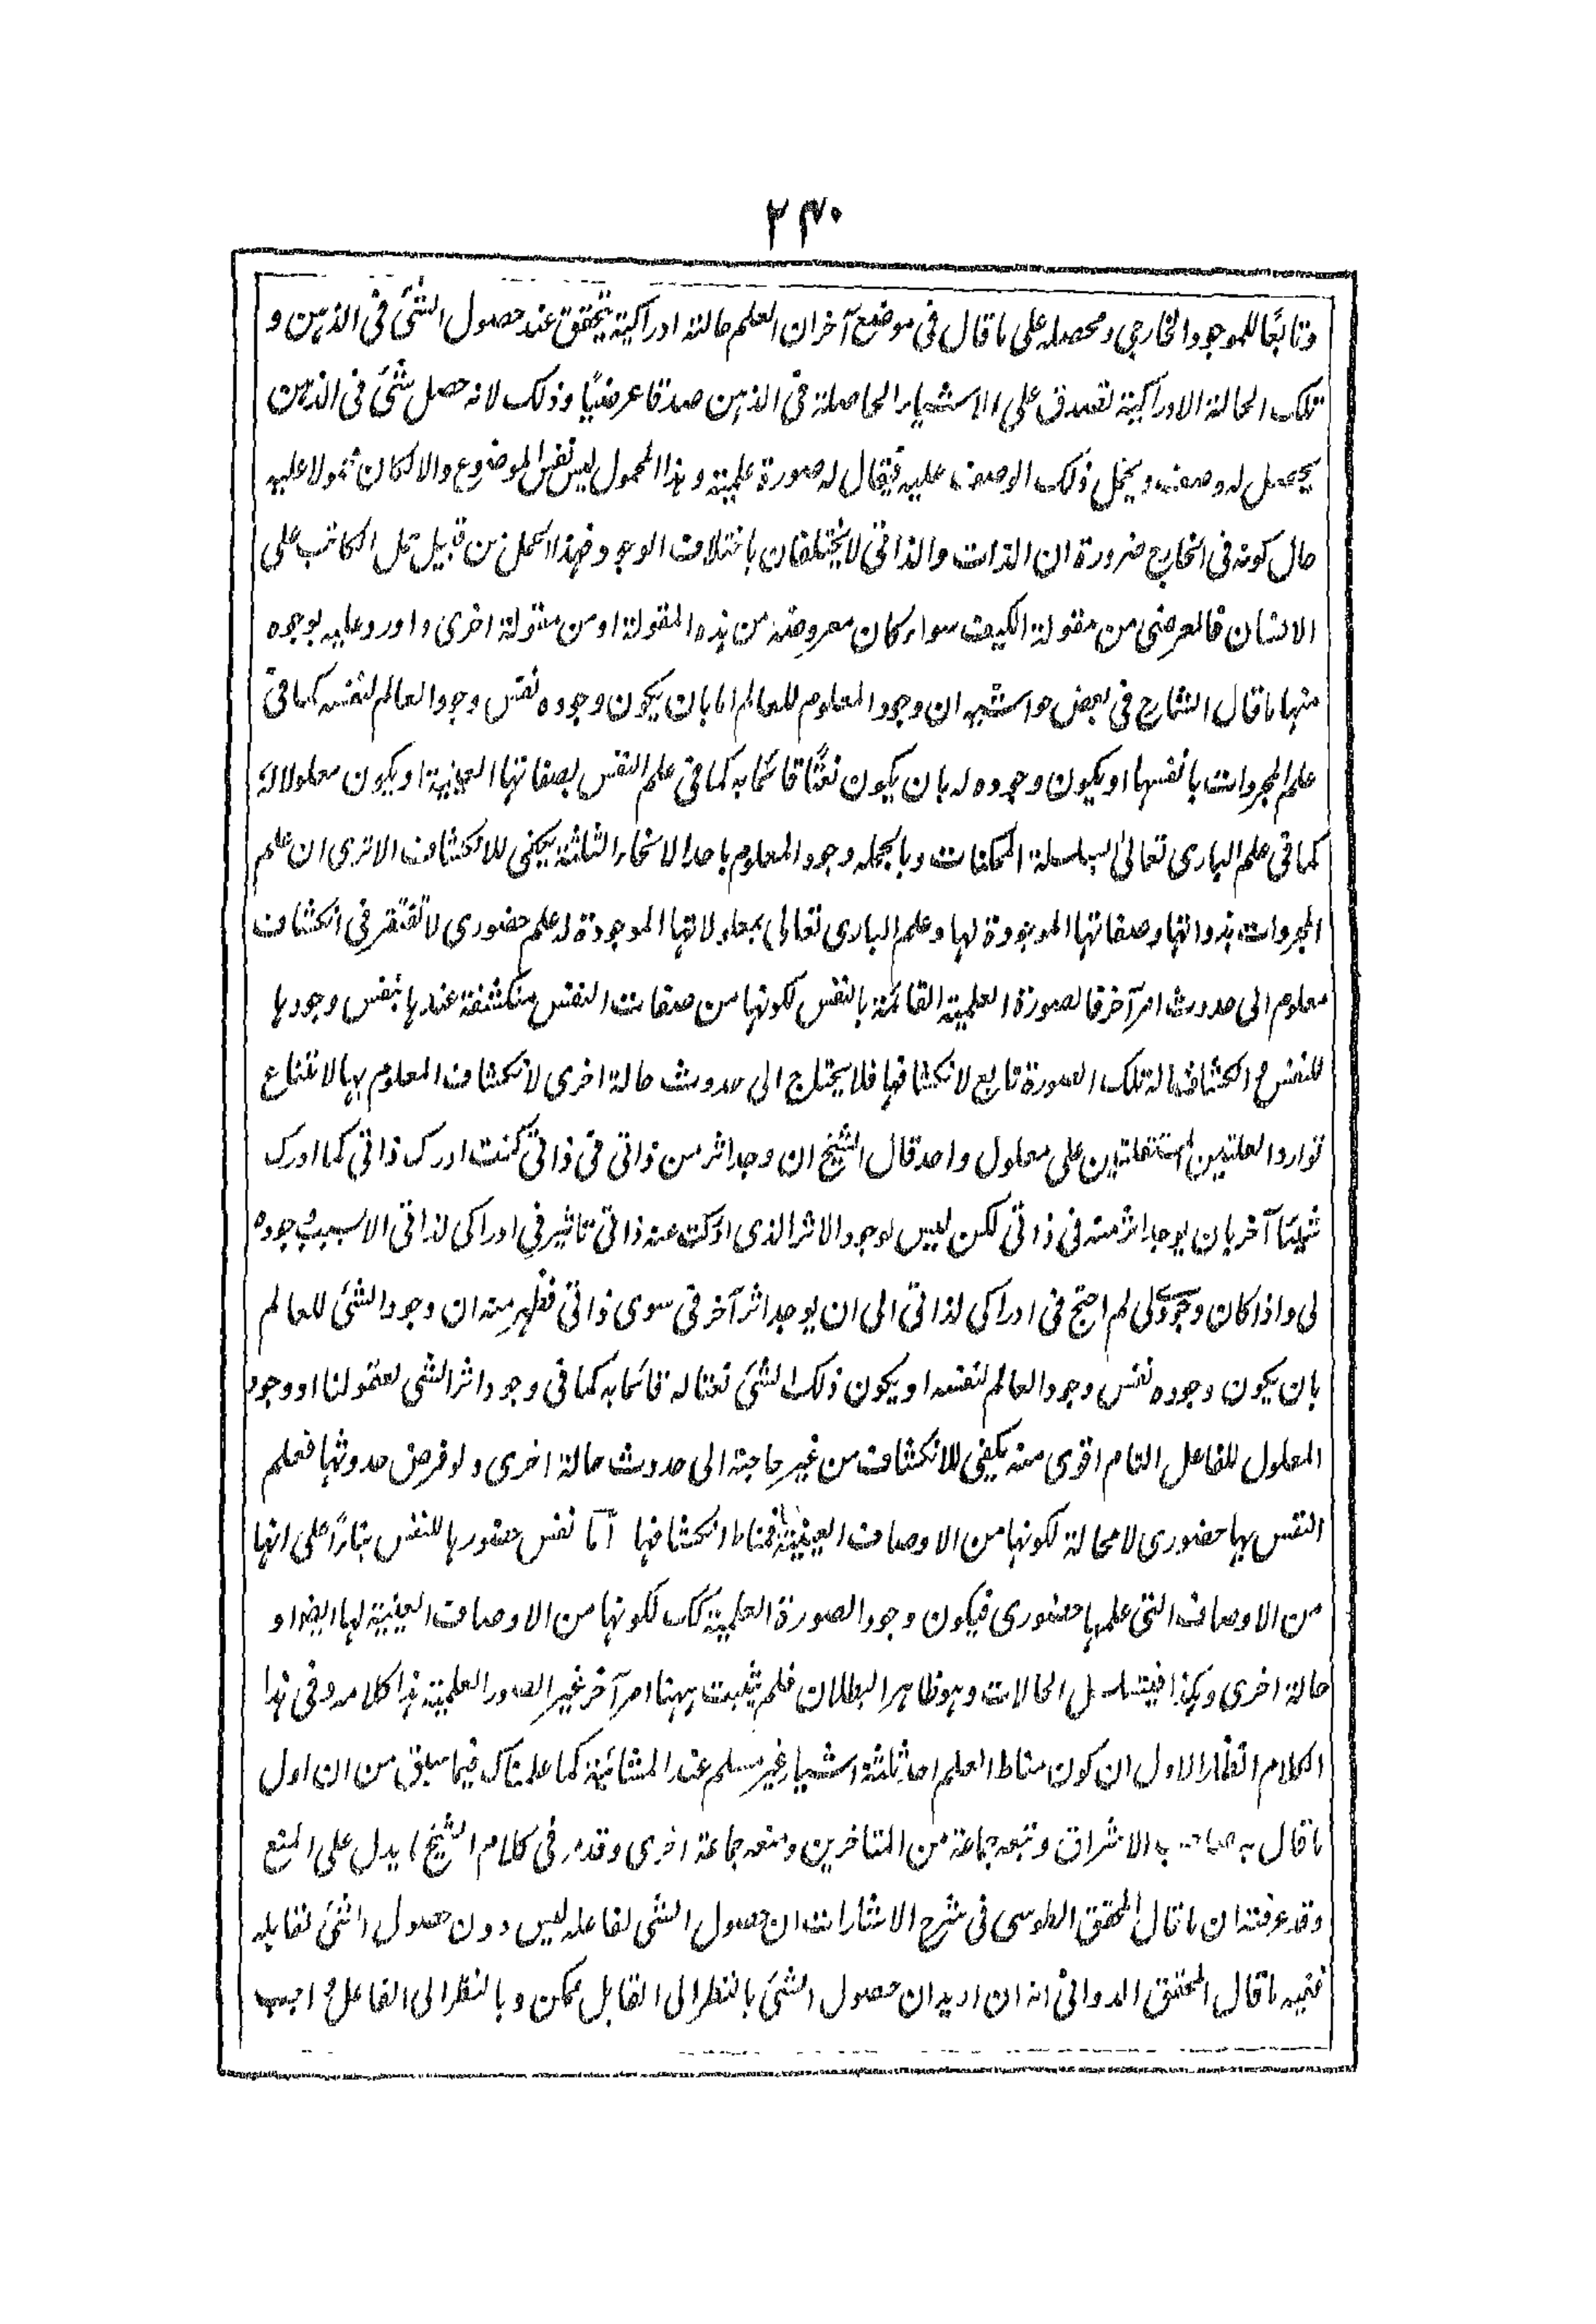 ۲۴۰
وتابعًا للموجود الخارجي ومحصله على ما قال فى موضع آخر ان العلم حالة ادراكية يتحقق عند حصول الشئ فى الذهن و
تلك الحالة الادراكية تصدق على الاشياء الحاصلة فى الذهن صدقا عرضيًا وذلك لانه حصل شئ فى الذهن
يحصل له وصف ويحمل ذلك الوصف عليه فيقال له صورة علمية وهذا المحمول ليس نفس الموضوع والا لكان محمولا عليه
حال كونه فى الخارج ضرورة ان الذات والذاتى لا يختلفان باختلاف الوجود فهذا الحمل من قبيل حمل الكاتب على
الانسان فالعرضى من مقولة الكيف سواء كان معروضه من هذه المقولة او من مقولة اخرى واورد عليه بوجوه
منها ما قال الشارح فى بعض حواشيه ان وجود المعلوم للعالم اما بان يكون وجوده نفس وجود العالم لنفسه كما فى
علم المجردات بانفسها او يكون وجوده له بان يكون نعتًا قائما به كما فى علم النفس بصفاتها العينية او يكون معلولا له
كما فى علم البارى تعالى بسلسلة الممكنات وبالجملة وجود المعلوم باحد الانحاء الثلثة يكفى للانكشاف الا ترى ان علم
المجردات بذواتها وصفاتها الموجودة لها وعلم البارى تعالى بمعلولاتها الموجودة له علم حضورى لا تفتقر فى انكشاف
معلوم الى حدوث امر آخر فالصورة العلمية القائمة بالنفس لكونها من صفات النفس منكشفة عندها بنفس وجودها
للنفس و انكشاف ما له تلك الصورة تابع لانكشافها فلا يحتاج الى حدوث حالة اخرى لانكشاف المعلوم بها لامتناع
توارد العلتين المستقلتين على معلول واحد قال الشيخ ان وجد اثر من ذاتى فى ذاتى كنت ادرك ذاتى كما ادرك
شيئا آخر بان يوجد اثر منه فى ذاتى لكن ليس لوجود الاثر الذى ادركت عنه ذاتى تاثير فى ادراكى لذاتى الا بسبب وجوده
لى واذا كان وجودى لى لم احتج فى ادراكى لذاتى الى ان يوجد اثر آخر فى سوى ذاتى فظهر منه ان وجود الشئ للعالم
بان يكون وجوده نفس وجود العالم لنفسه او يكون ذلك الشئ نعتا له قائما به كما فى وجود اثر الشى لعقولنا او وجود
المعلول للفاعل التام اقوى منه يكفى للانكشاف من غير حاجة الى حدوث حالة اخرى ولو فرض حدوثها فعلم
النفس بها حضورى لا محالة لكونها من الاوصاف العينية فمناط انكشافها اما نفس حضورها للنفس بناءً على انها
من الاوصاف التى علمها حضورى فيكون وجود الصورة العلمية كك لكونها من الاوصاف العينية لها ايضا او
حالة اخرى وهكذا فيتسلسل الحالات وهو ظاهر البطلان فلم يثبت ههنا امر آخر غير الصور العلمية هذا كلامه وفى هذا
الكلام انظار الاول ان كون مناط العلم احد ثلثة اشياء غير مسلم عند المشائية كما علمناك فيما سبق من ان اول
ما قال به صاحب الاشراق وتبعه جماعة من المتاخرين ومنعه جماعة اخرى وقد مر فى كلام الشيخ ما يدل على المنع
وقد عرفت ان ما قال المحقق الطوسى فى شرح الاشارات ان حصول الشى لفاعله ليس دون حصول الشئ لقابله
ففيه ما قال المحقق الدوانى انه ان اريد ان حصول الشئ بالنظر الى القابل ممكن وبالنظر الى الفاعل واجب